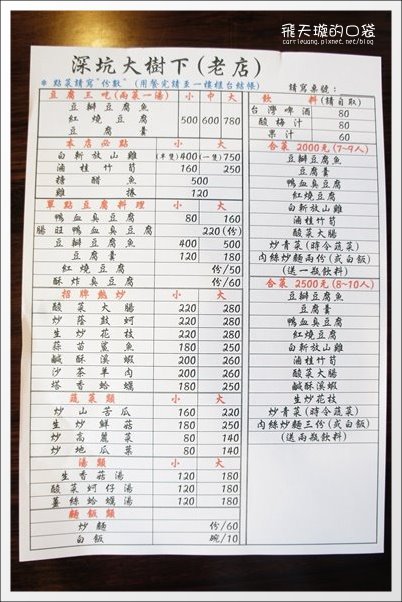 飛天璇的口袋
carrieuang.pixnet.net/blog
深坑大樹下(老店)
*點菜請寫"份數"(用餐完請至一樓櫃台結帳)
請寫桌號:
豆腐三吃(兩菜一湯) 小 中 大
豆瓣豆腐魚
紅燒豆腐 500 600 780
豆腐羹
本店必點 小 大
白斬放山雞 (半隻)400 (一隻)750
滷桂竹筍 160 250
糖醋魚 500
雞捲 120
單點豆腐料理 小 大
鴨血臭豆腐 80 160
腸旺鴨血臭豆腐 220(份)
豆瓣豆腐魚 400 500
豆腐羹 120 180
紅燒豆腐 份/50
酥炸臭豆腐 份/60
招牌熱炒 小 大
酸菜大腸 220 280
炒蔭鼓蚵 220 280
生炒花枝 220 280
蒜苗鯊魚 180 250
鹹酥溪蝦 200 260
沙茶羊肉 200 260
塔香蛤蠣 180 250
蔬菜類 小 大
炒山苦瓜 160 220
生炒鮮菇 180 250
炒高麗菜 80 140
炒地瓜葉 80 140
湯類 小 大
生香菇湯 120 180
酸菜蚵仔湯 120 180
薑絲蛤蠣湯 120 180
麵飯類
炒麵 份/60
白飯 碗/10
飲料(請自取)
台灣啤酒 80
酸梅汁 80
果汁 60
合菜2000元(7-9人)
豆瓣豆腐魚
豆腐羹
鴨血臭豆腐
紅燒豆腐
白斬放山雞
滷桂竹筍
酸菜大腸
炒青菜(時令蔬菜)
肉絲炒麵兩份(或白飯)
(送一瓶飲料)
合菜2500元(8~10人)
豆瓣豆腐魚
豆腐羹
鴨血臭豆腐
紅燒豆腐
白斬放山雞
滷桂竹筍
酸菜大腸
鹹酥溪蝦
生炒花枝
炒青菜(時令蔬菜)
肉絲炒麵三份(或白飯)
(送兩瓶飲料)